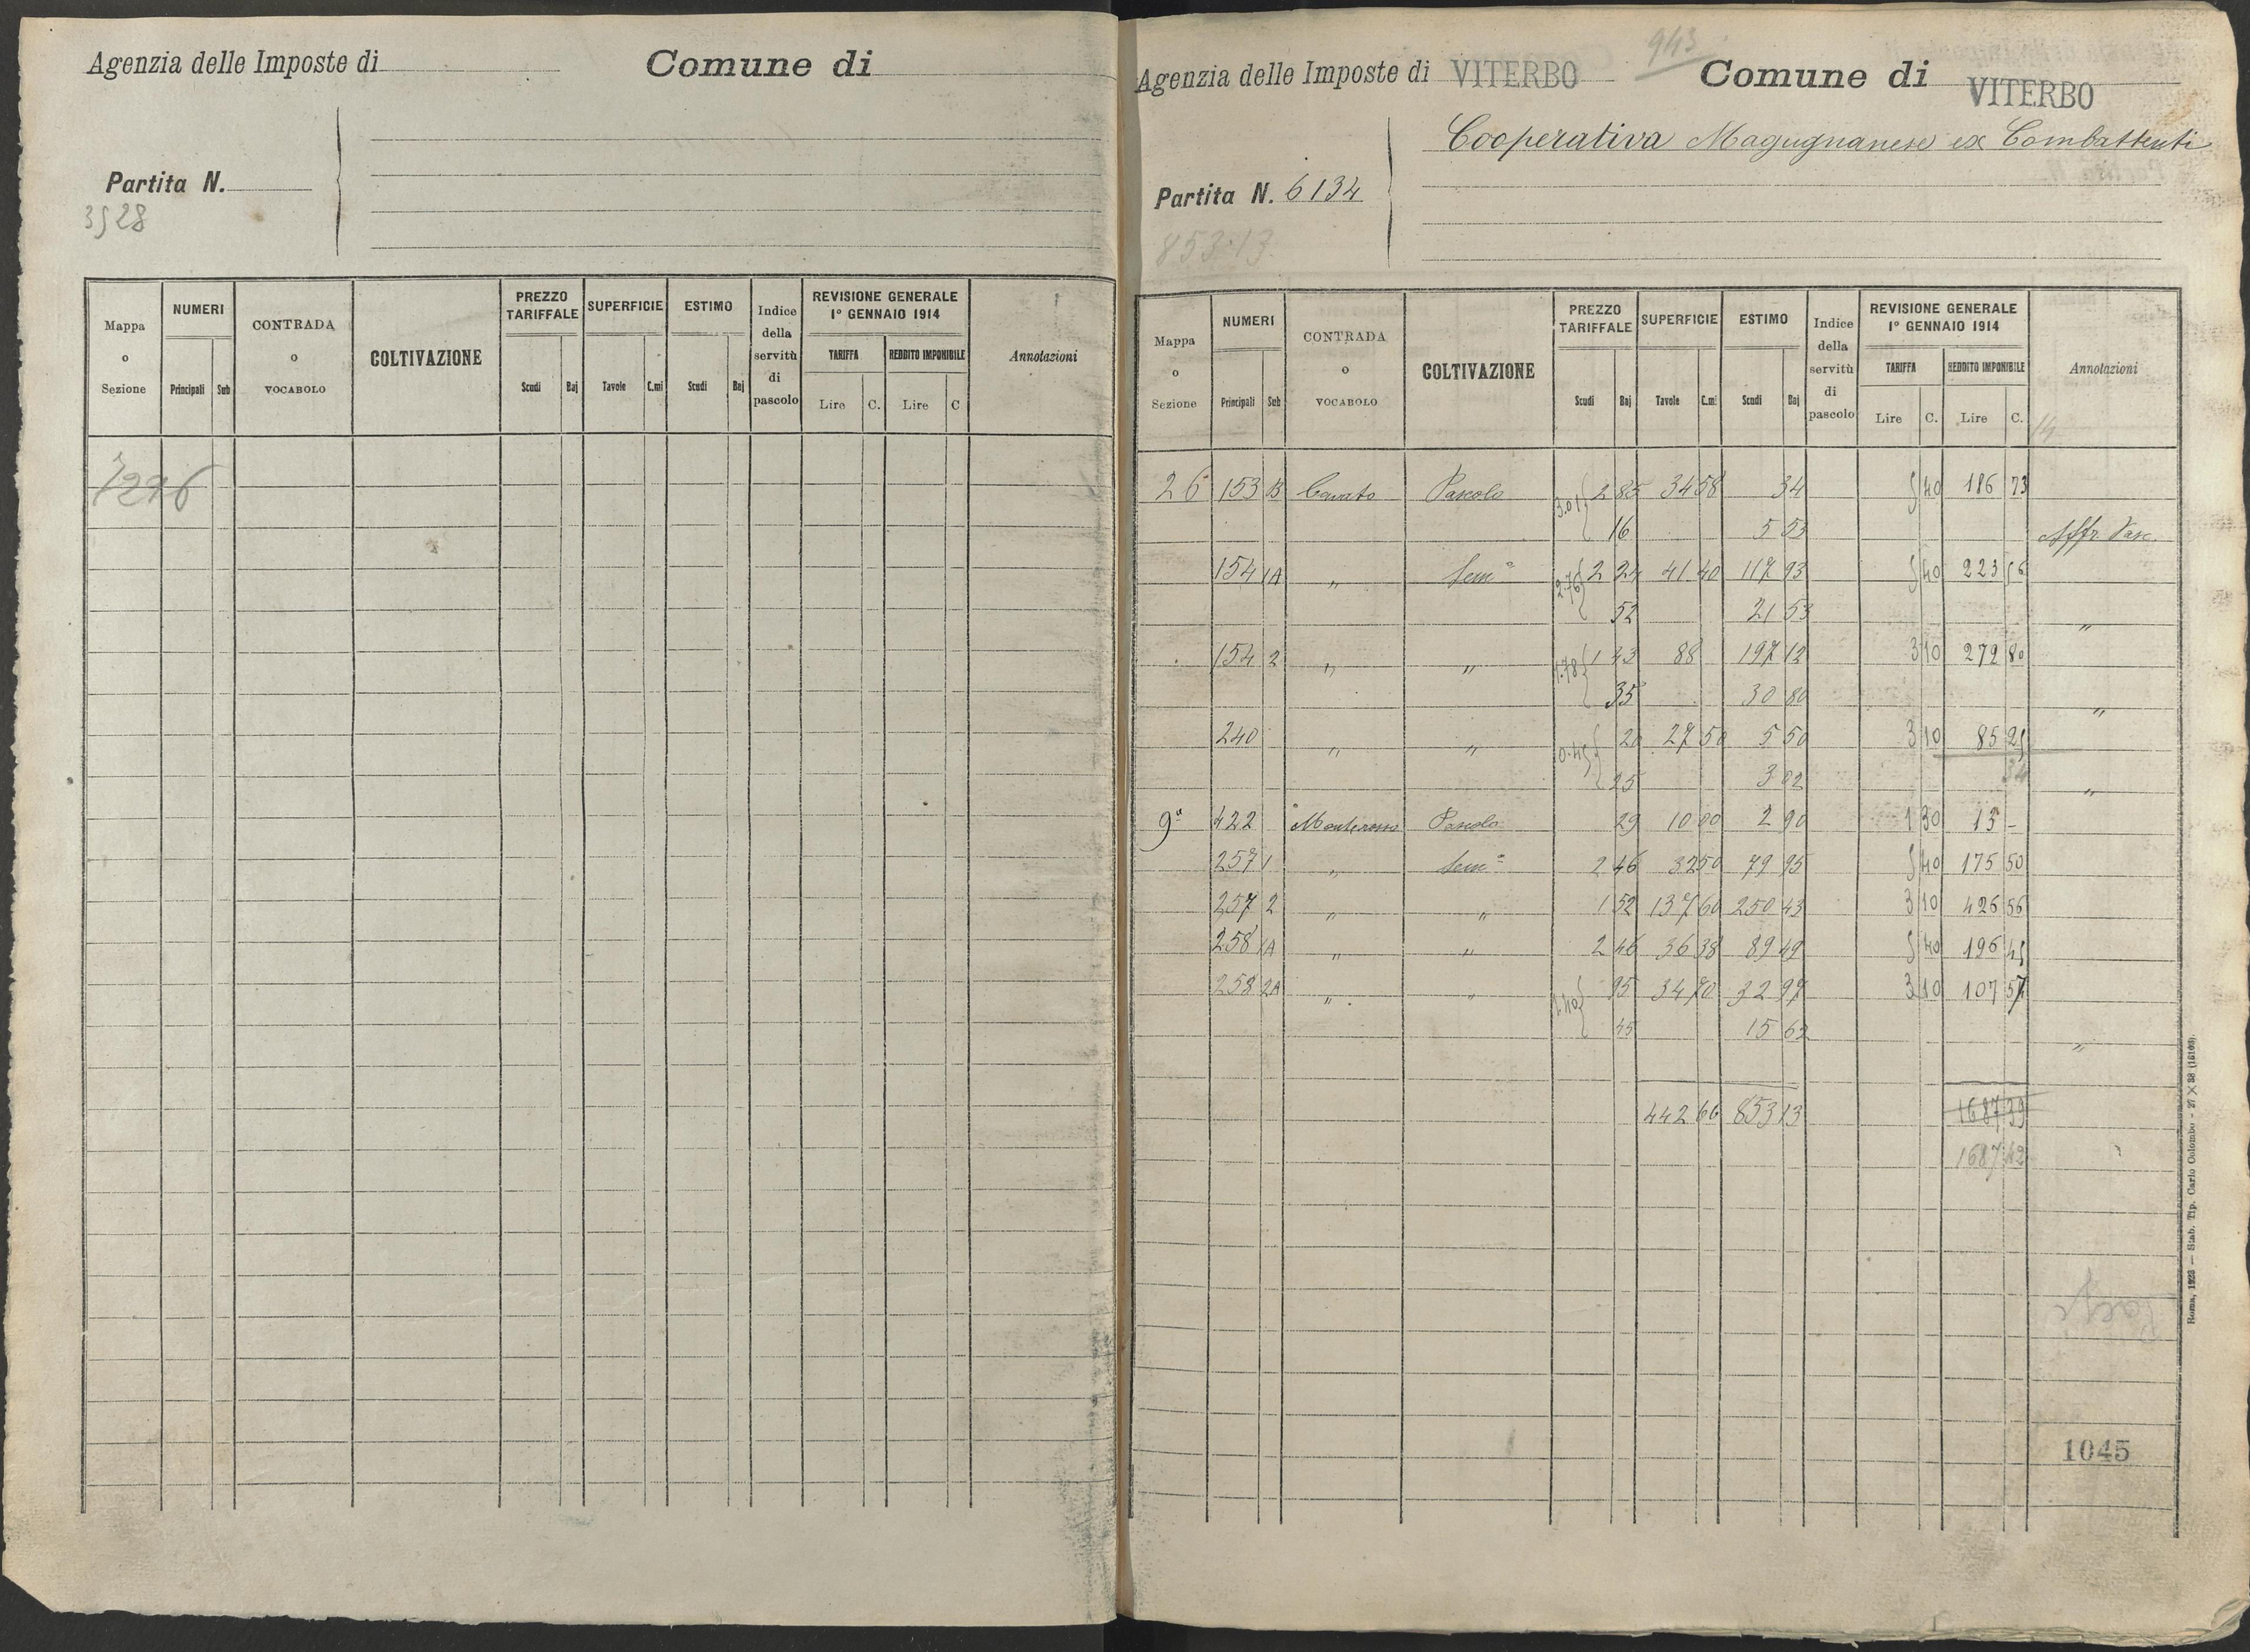 Agenzia delle Imposte di
Comune di
Partita N.
3528
Mappa o Sezione
NUMERI
Principali
Sub
CONTRADA o VOCABOLO
COLTIVAZIONE
PREZZO TARIFFALE
Scudi
Baj
SUPERFICIE
Tavole
C.mi
ESTIMO
Scudi
Baj
Indice della servitù di pascolo
REVISIONE GENERALE 1° GENNAIO 1914
TARIFFA
Lire
C.
REDDITO IMPONIBILE
Lire
C
Annotazioni
943
Agenzia delle Imposte di VITERBO
Comune di VITERBO
Cooperativa Magugnanese ex Combattenti
Partita N. 6134
853.13
Mappa o Sezione
NUMERI
Principali
Sub
CONTRADA o VOCABOLO
COLTIVAZIONE
PREZZO TARIFFALE
Scudi
Baj
SUPERFICIE
Tavole
C.mi
ESTIMO
Scudi
Baj
Indice della servitù di pascolo
REVISIONE GENERALE 1° GENNAIO 1914
TARIFFA
Lire
C.
REDDITO IMPONIBILE
Lire
C.
Annotazioni
14
26 153 B Cavato Pascolo 3.01 2 85 34 58 34 5 40 186 73
16 5 53 Affr. Pasc.
154 1A " Sem° 2.76 2 24 41 40 117 93 5 40 223 56
52 21 53 "
154 2 " " 1.78 1 43 88 197 12 3 10 272 80
35 30 80 "
240 " " 0.45 20 27 50 5 50 3 10 85 25
25 3 02 "
9a 422 Monterosso Pascolo 29 10 00 2 90 1 30 13 –
257 1 " Sem° 2 46 32 50 79 95 5 40 175 50
257 2 " " 1 52 137 60 250 43 3 10 426 56
258 1A " " 2 46 36 38 89 49 5 40 196 45
258 2A " " 1.40 95 34 70 32 97 3 10 107 57
45 15 62 "
442 66 853 13 1687 39
1687 42
1045
Roma, 1923 — Stab. Tip. Carlo Colombo - 27 X 38 (16108).